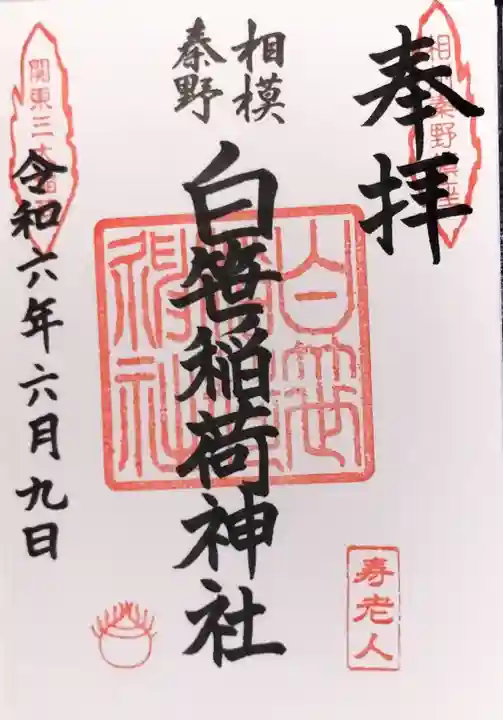 奉拝
寿老人
相模
秦野
白笹稲荷神社
白笹
稲荷
神社
関東三大稲
令和六年六月九日